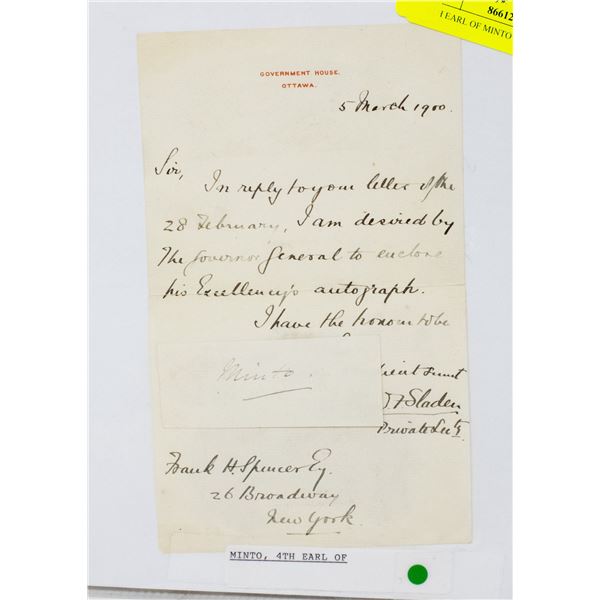 86612
1 EARL OF MINTO
GOVERNMENT HOUSE.
OTTAWA.
5 March 1900.
Sir,
In reply to your letter of the
28 February, I am desired by
The Governor General to enclose
his Excellency's autograph.
I have the honour to be
Minto.
dient Servt
Sladen
Private Secty
Frank H. Spencer Esq.
26 Broadway
New York.
MINTO, 4TH EARL OF